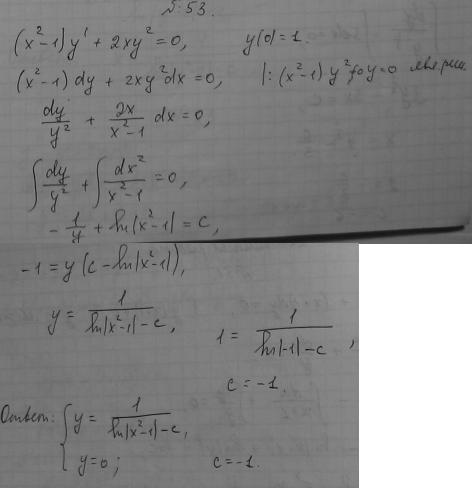 №53.
(x²-1)y' + 2xy² = 0, y(0)=1.
(x²-1)dy + 2xy²dx = 0, |:(x²-1)y²≠0 y=0
dy/y² + 2x/(x²-1) dx = 0,
∫dy/y² + ∫dx²/(x²-1) = 0,
-1/y + ln|x²-1| = c,
-1 = y(c - ln|x²-1|),
y = 1/(ln|x²-1| - c), 1 = 1/(ln|-1| - c),
c = -1.
Ответ: { y = 1/(ln|x²-1| - c),
y=0; c=-1.